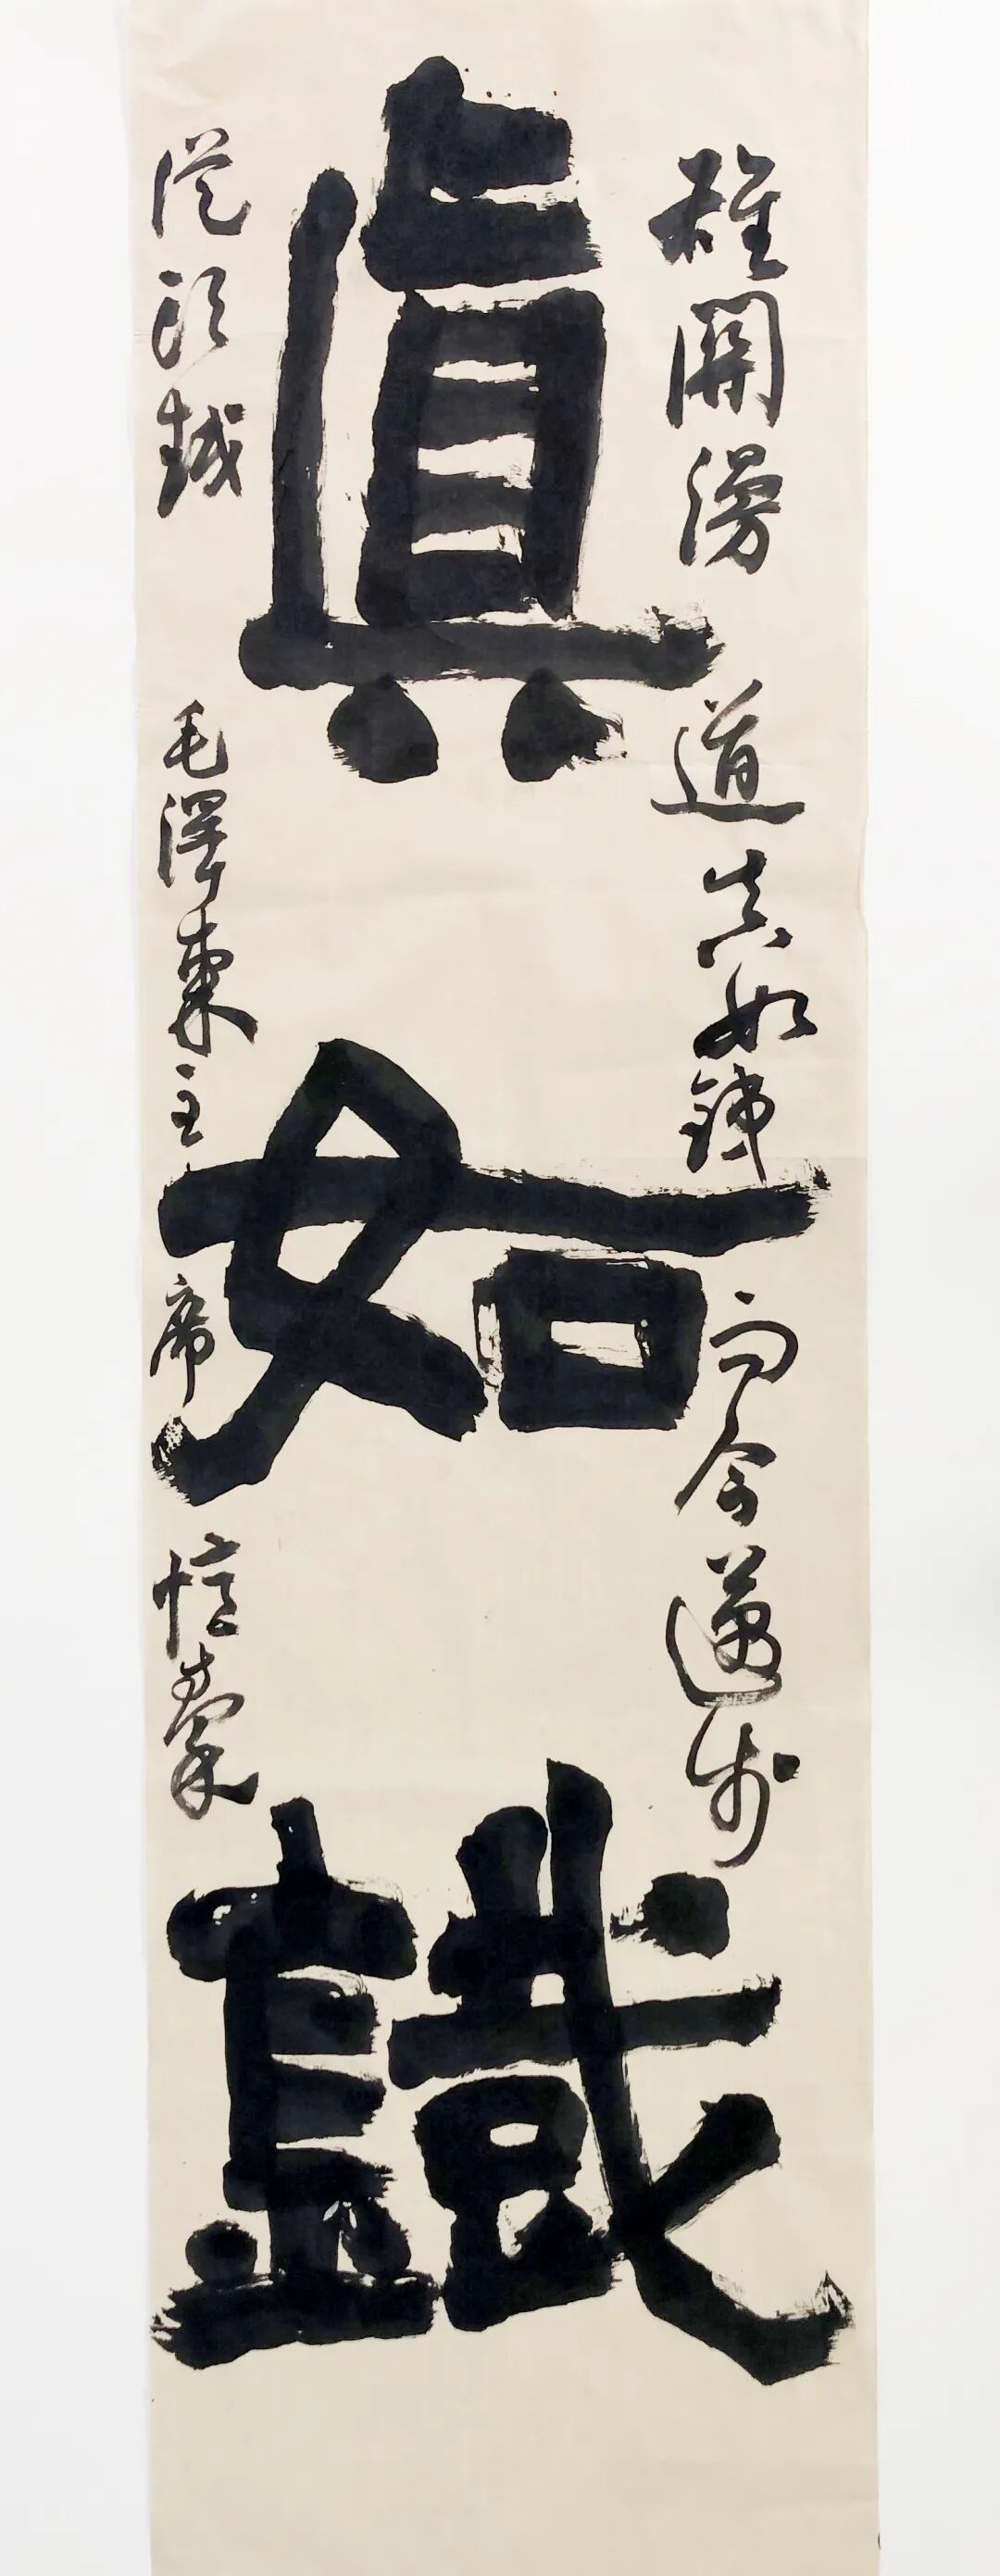 真如鐵
雄關漫道真如鐵而今邁步
從頭越 毛澤東主席 憶秦